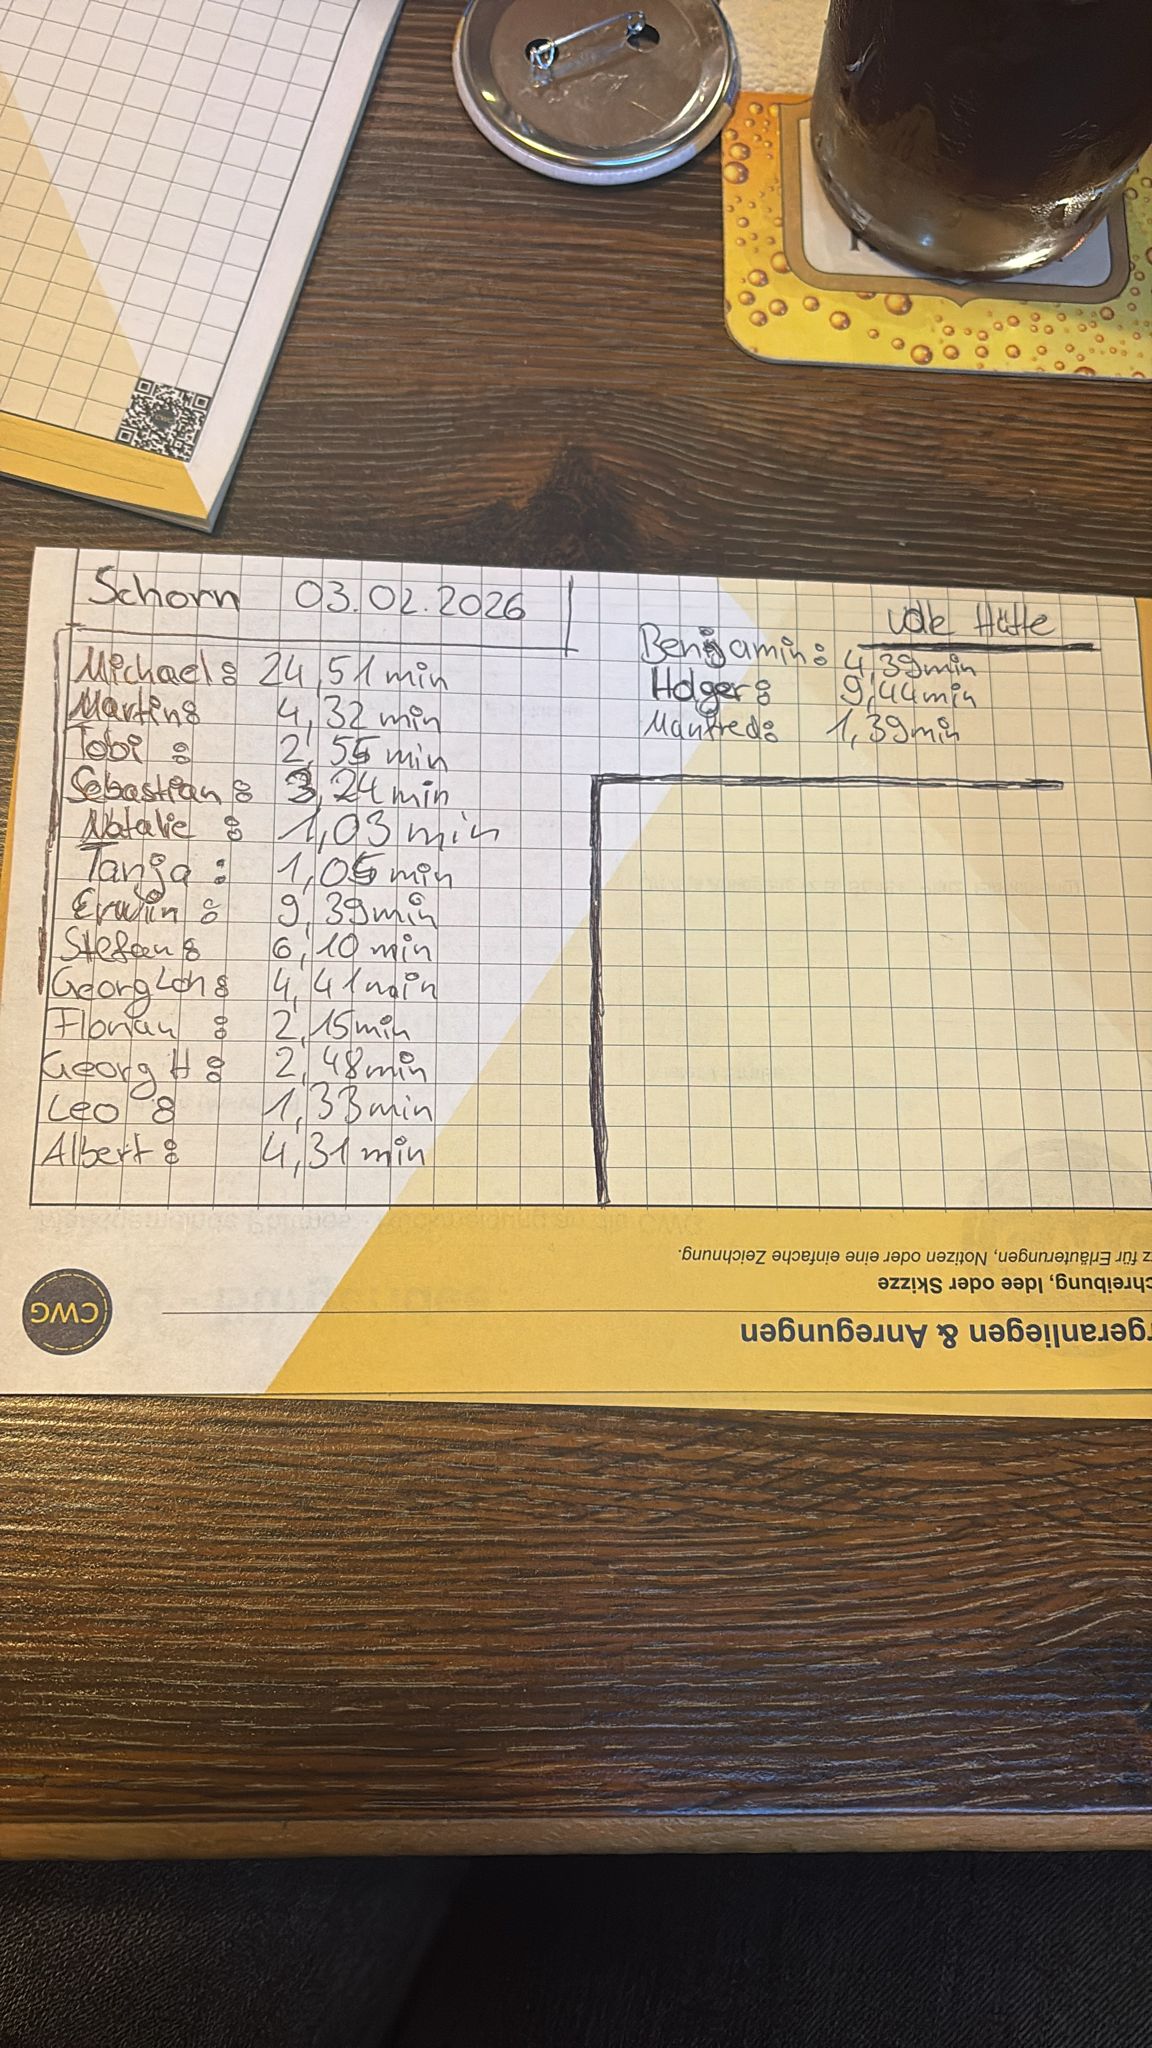 Schorn 03.02.2026
Michael: 24,51 min
Martin: 4,32 min
Tobi: 2,55 min
Sebastian: 3,24 min
Natalie: 1,03 min
Tanja: 1,05 min
Erwin: 9,39 min
Stefan: 6,10 min
Georg Loh: 4,41 min
Florian: 2,15 min
Georg H: 2,48 min
Leo: 1,33 min
Albert: 4,31 min
Hütte
Benjamin: 4,39 min
Holger: 9,44 min
Manfred: 1,39 min
tz für Erläuterungen, Notizen oder eine einfache Zeichnung.
chreibung, Idee oder Skizze
rgeranliegen & Anregungen
CWG